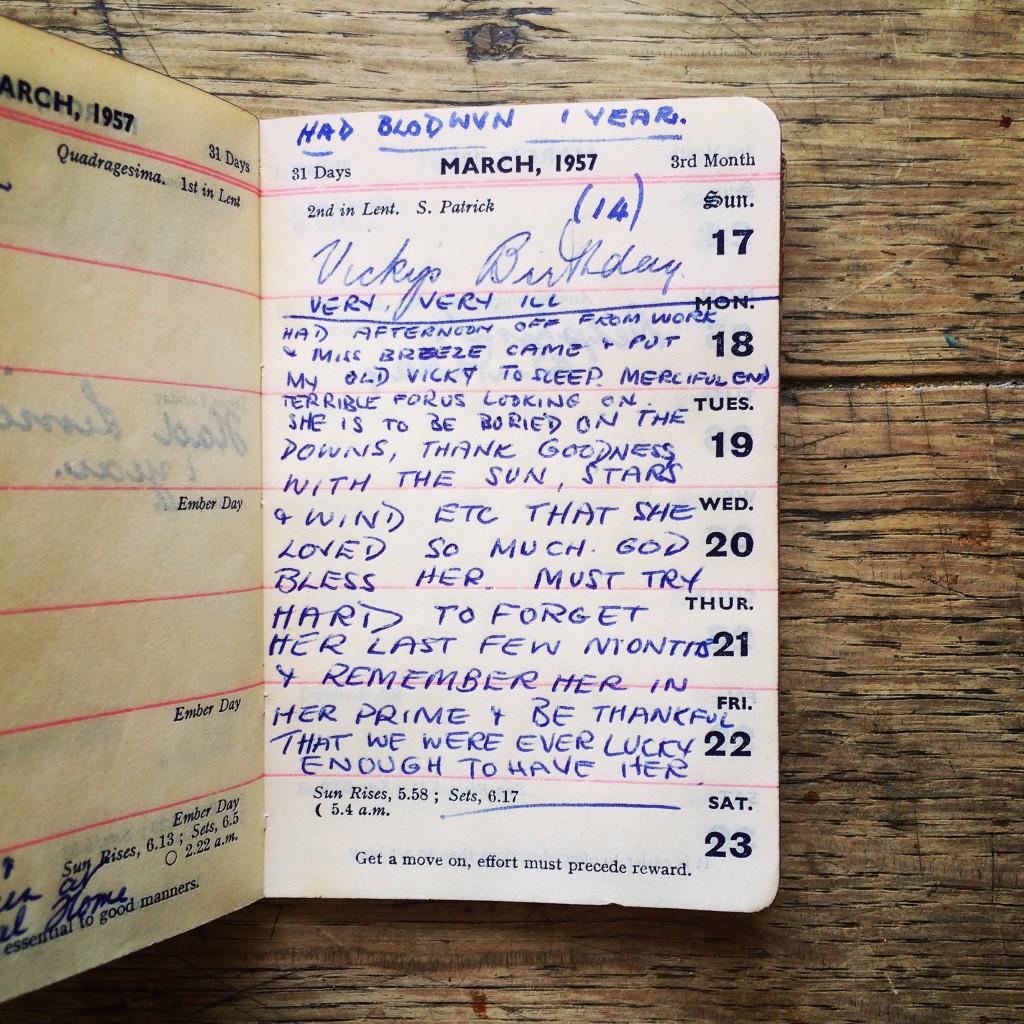 ARCH, 1957
31 Days
Quadragesima. 1st in Lent
Had
1 year.
Ember Day
Ember Day
Ember Day
Sun Rises, 6.13; Sets, 6.5
2.22 a.m.
Home
essential to good manners.
HAD BLODWYN 1 YEAR.
31 Days MARCH, 1957 3rd Month
2nd in Lent. S. Patrick (14) Sun.
17
Vickys Birthday.
VERY, VERY ILL MON.
HAD AFTERNOON OFF FROM WORK
& MISS BREEZE CAME & PUT 18
MY OLD VICKY TO SLEEP. MERCIFUL END
TERRIBLE FOR US LOOKING ON. TUES.
SHE IS TO BE BURIED ON THE
DOWNS, THANK GOODNESS 19
WITH THE SUN, STARS
& WIND ETC THAT SHE WED.
LOVED SO MUCH. GOD 20
BLESS HER. MUST TRY
HARD TO FORGET THUR.
HER LAST FEW MONTHS 21
& REMEMBER HER IN
HER PRIME & BE THANKFUL FRI.
THAT WE WERE EVER LUCKY 22
ENOUGH TO HAVE HER.
Sun Rises, 5.58; Sets, 6.17 SAT.
( 5.4 a.m.
23
Get a move on, effort must precede reward.